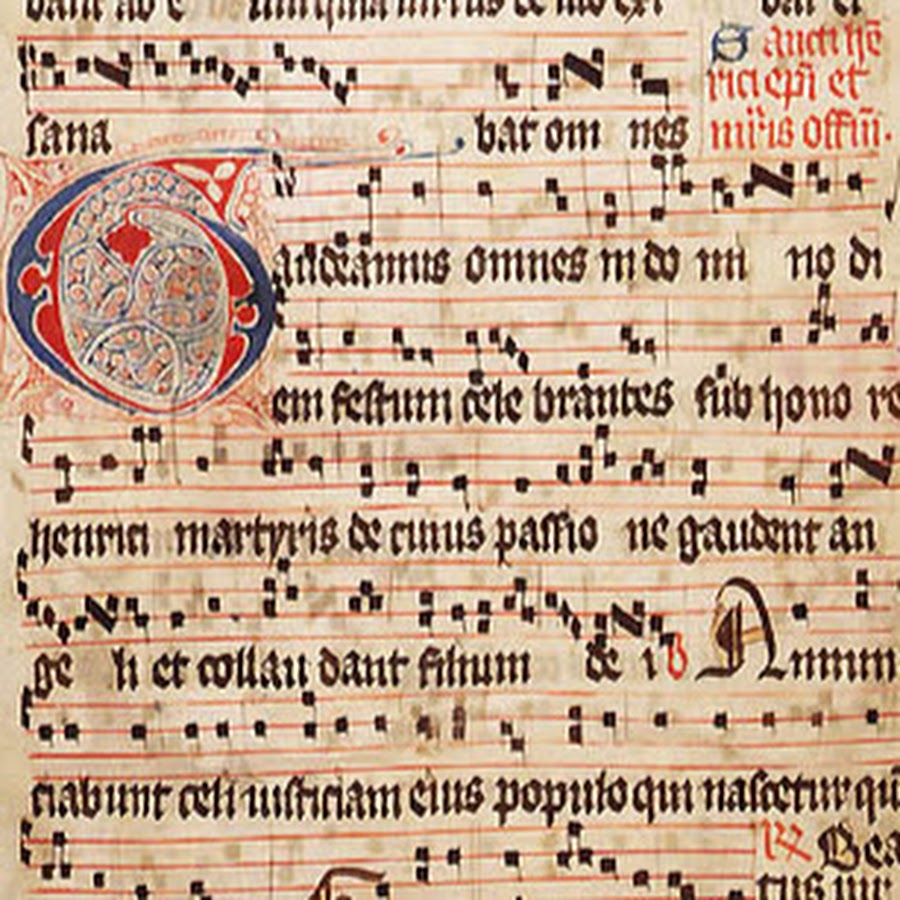 sana bat om nes
Sancti hē
rici epī et
mr̄is offm̄.
Gaudeamus omnes in do mi no di
em festum cele brantes sub hono re
henrici martyris de cuius passio ne gaudent an
ge li et collau dant filium de i V Annun
ciabunt celi iusticiam eius populo qui nascetur qū
R Bea
tus uir